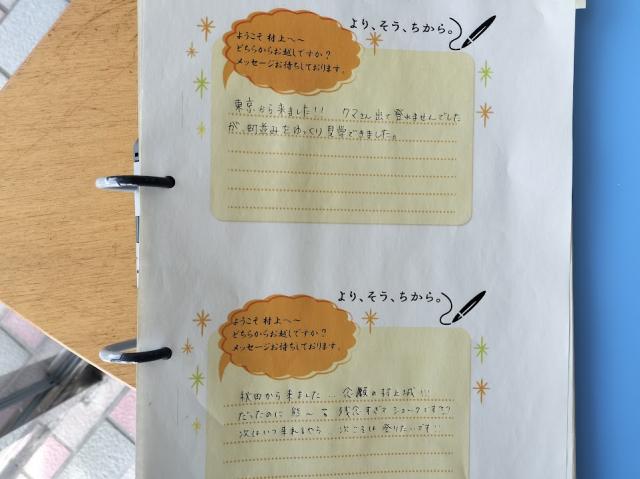 より、そう、ちから。
ようこそ 村上へ～
どちらからお越しですか?
メッセージお待ちしております。
東京から来ました!! クマさん出て登れませんでした
が、町並みをゆっくり見学できました。
より、そう、ちから。
ようこそ 村上へ～
どちらからお越しですか?
メッセージお待ちしております。
秋田から来ました… 念願の村上城!!!
だったのに 熊～ 残念すぎて ショックです??
次はいつ来れるやら 次こそは 登りたいです!!